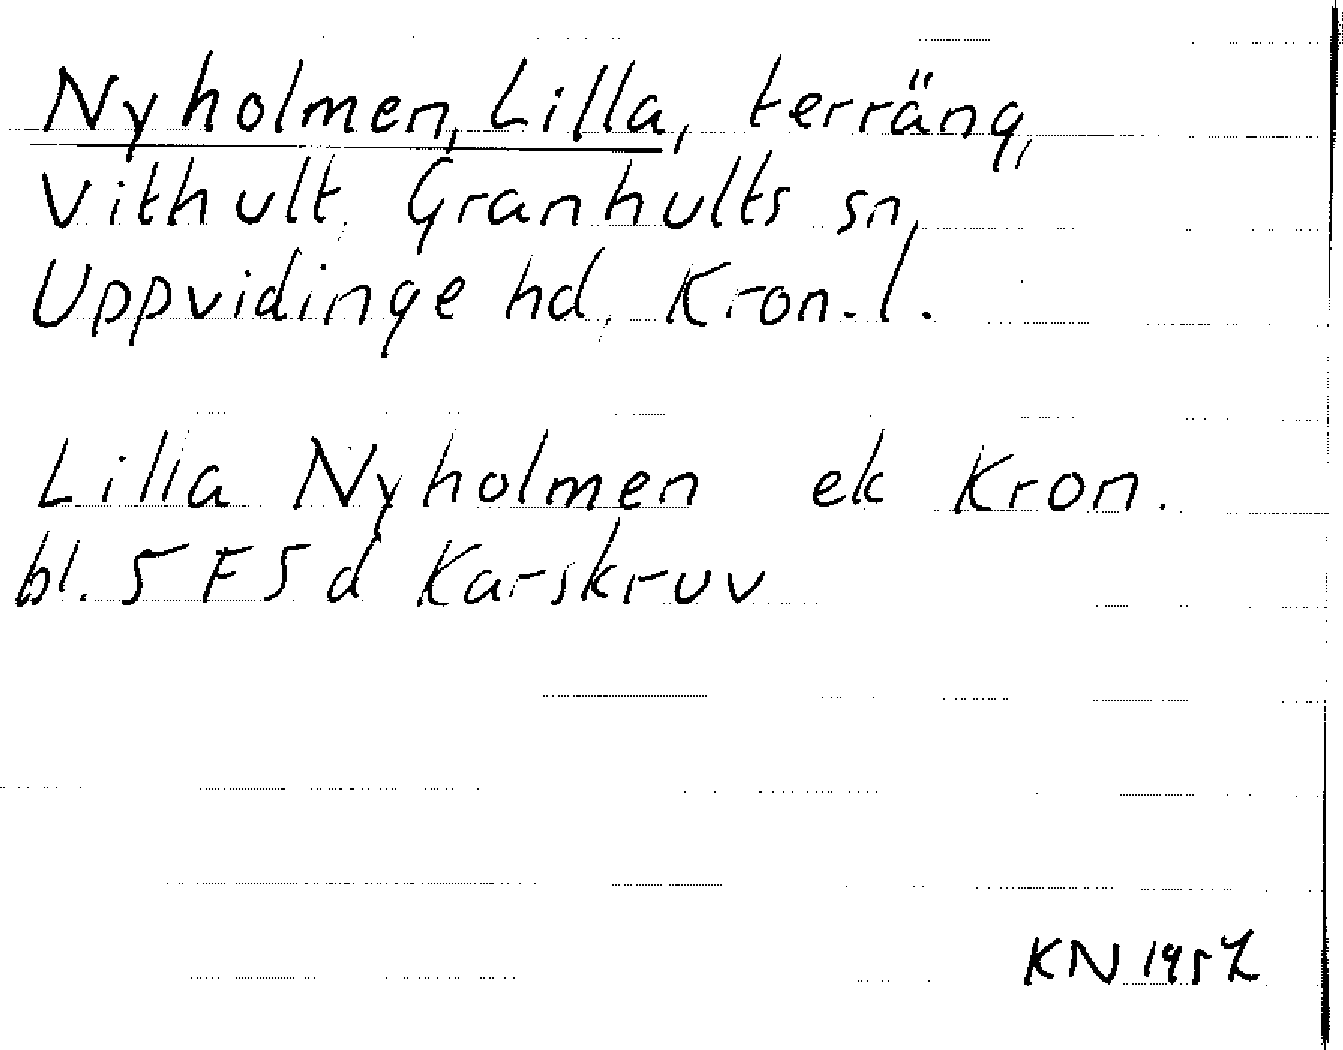 Nyholmen, Lilla, terräng,
Vithult, Granhults sn,
Uppvidinge hd, Kron.l.
Lilla Nyholmen ek Kron.
bl. 5 F 5 d Karskruv
KN 1957